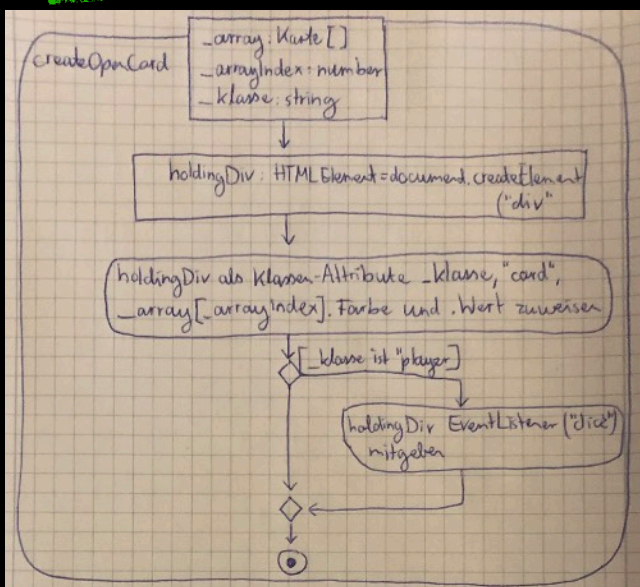 createOpenCard
_array: Karte[]
_arrayIndex: number
_klasse: string
holdingDiv: HTMLElement = document.createElement
("div"
holdingDiv als Klassen-Attribute _klasse, "card",
_array[_arrayIndex].Farbe und .Wert zuweisen
[_klasse ist "player]
holdingDiv EventListener ("click")
mitgeben